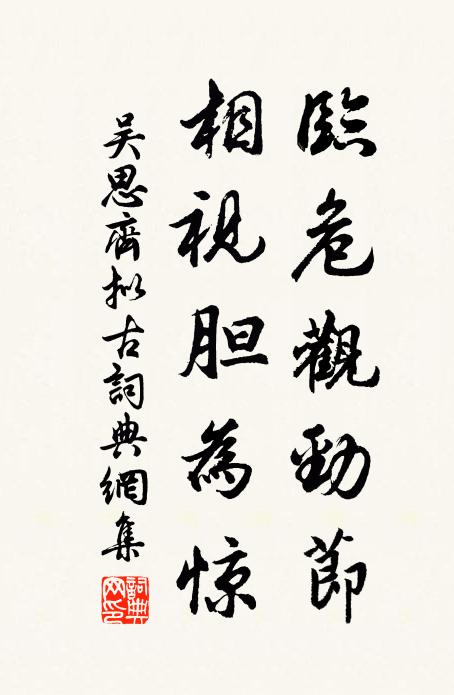 臨危觀勁節
相視胆為惊
吴思齊拟古詞典網集
詞典網印